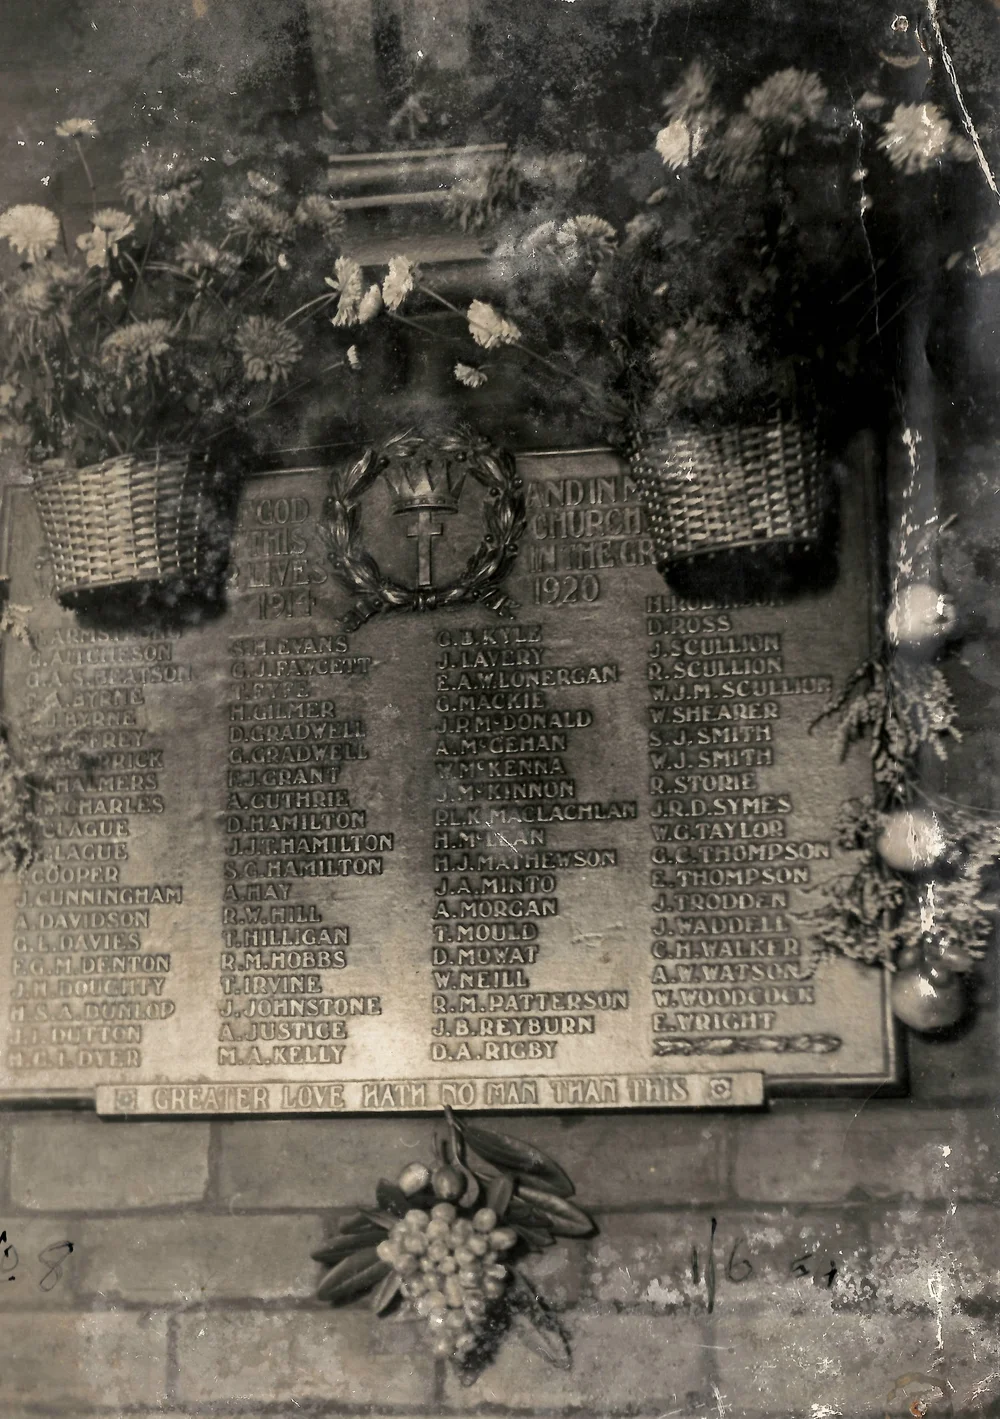 GOD
THIS
LIVES
1914
AND IN
CHURCH
IN THE
1920
G. AITCHESON
G.A.S. BEATSON
A. BYRNE
J. BYRNE
CHALMERS
CHARLES
CLAGUE
CLAGUE
COOPER
J. CUNNINGHAM
A. DAVIDSON
G.L. DAVIES
F.G.M. DENTON
J.H. DOUGHTY
H.S.A. DUNLOP
DUTTON
H.G.L. DYER
S.H. EVANS
G.J. FAWCETT
T. FYFE
H. GILMER
D. GRADWELL
G. GRADWELL
F.J. GRANT
A. GUTHRIE
D. HAMILTON
J.J.T. HAMILTON
S.G. HAMILTON
A. HAY
R.W. HILL
T. HILLIGAN
R.M. HOBBS
T. IRVINE
J. JOHNSTONE
A. JUSTICE
M.A. KELLY
G.B. KYLE
J. LAVERY
E.A.W. LONERGAN
G. MACKIE
J.P. McDONALD
A. McGEHAN
W. McKENNA
J. McKINNON
R.L.K. MACLACHLAN
H. McLEAN
H.J. MATHEWSON
J.A. MINTO
A. MORGAN
T. MOULD
D. MOWAT
W. NEILL
R.M. PATTERSON
J.B. REYBURN
D.A. RIGBY
H. ROBINSON
D. ROSS
J. SCULLION
R. SCULLION
W.J.M. SCULLION
W. SHEARER
S.J. SMITH
W.J. SMITH
R. STORIE
J.R.D. SYMES
W.G. TAYLOR
G.C. THOMPSON
E. THOMPSON
J. TRODDEN
J. WADDELL
C.H. WALKER
A.W. WATSON
W. WOODCOCK
E. WRIGHT
GREATER LOVE HATH NO MAN THAN THIS
8